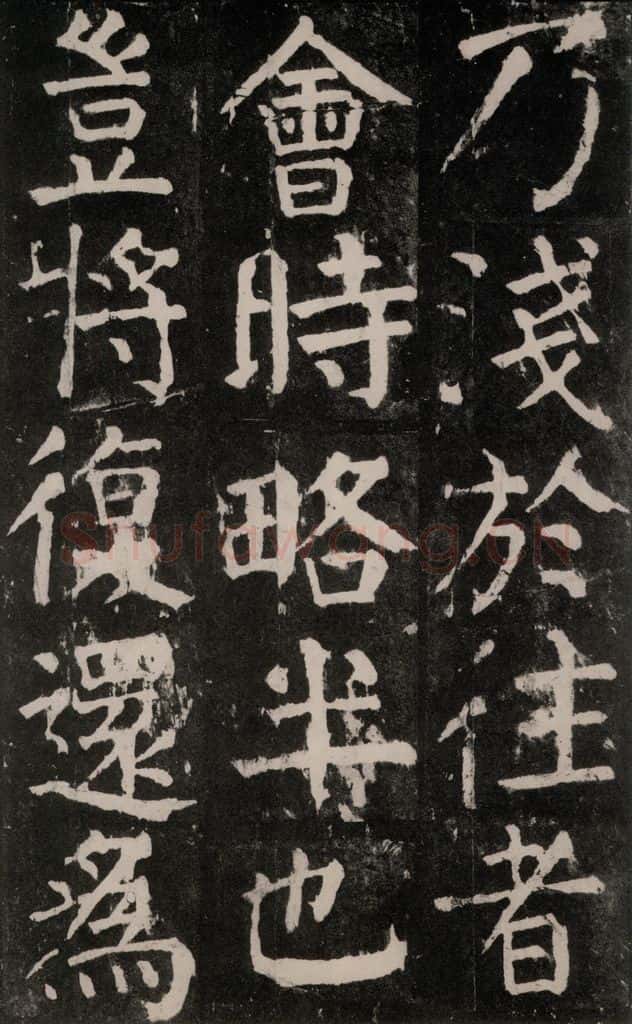 乃淺於往者
會時略半也
豈將復還為
Shufawang.CN